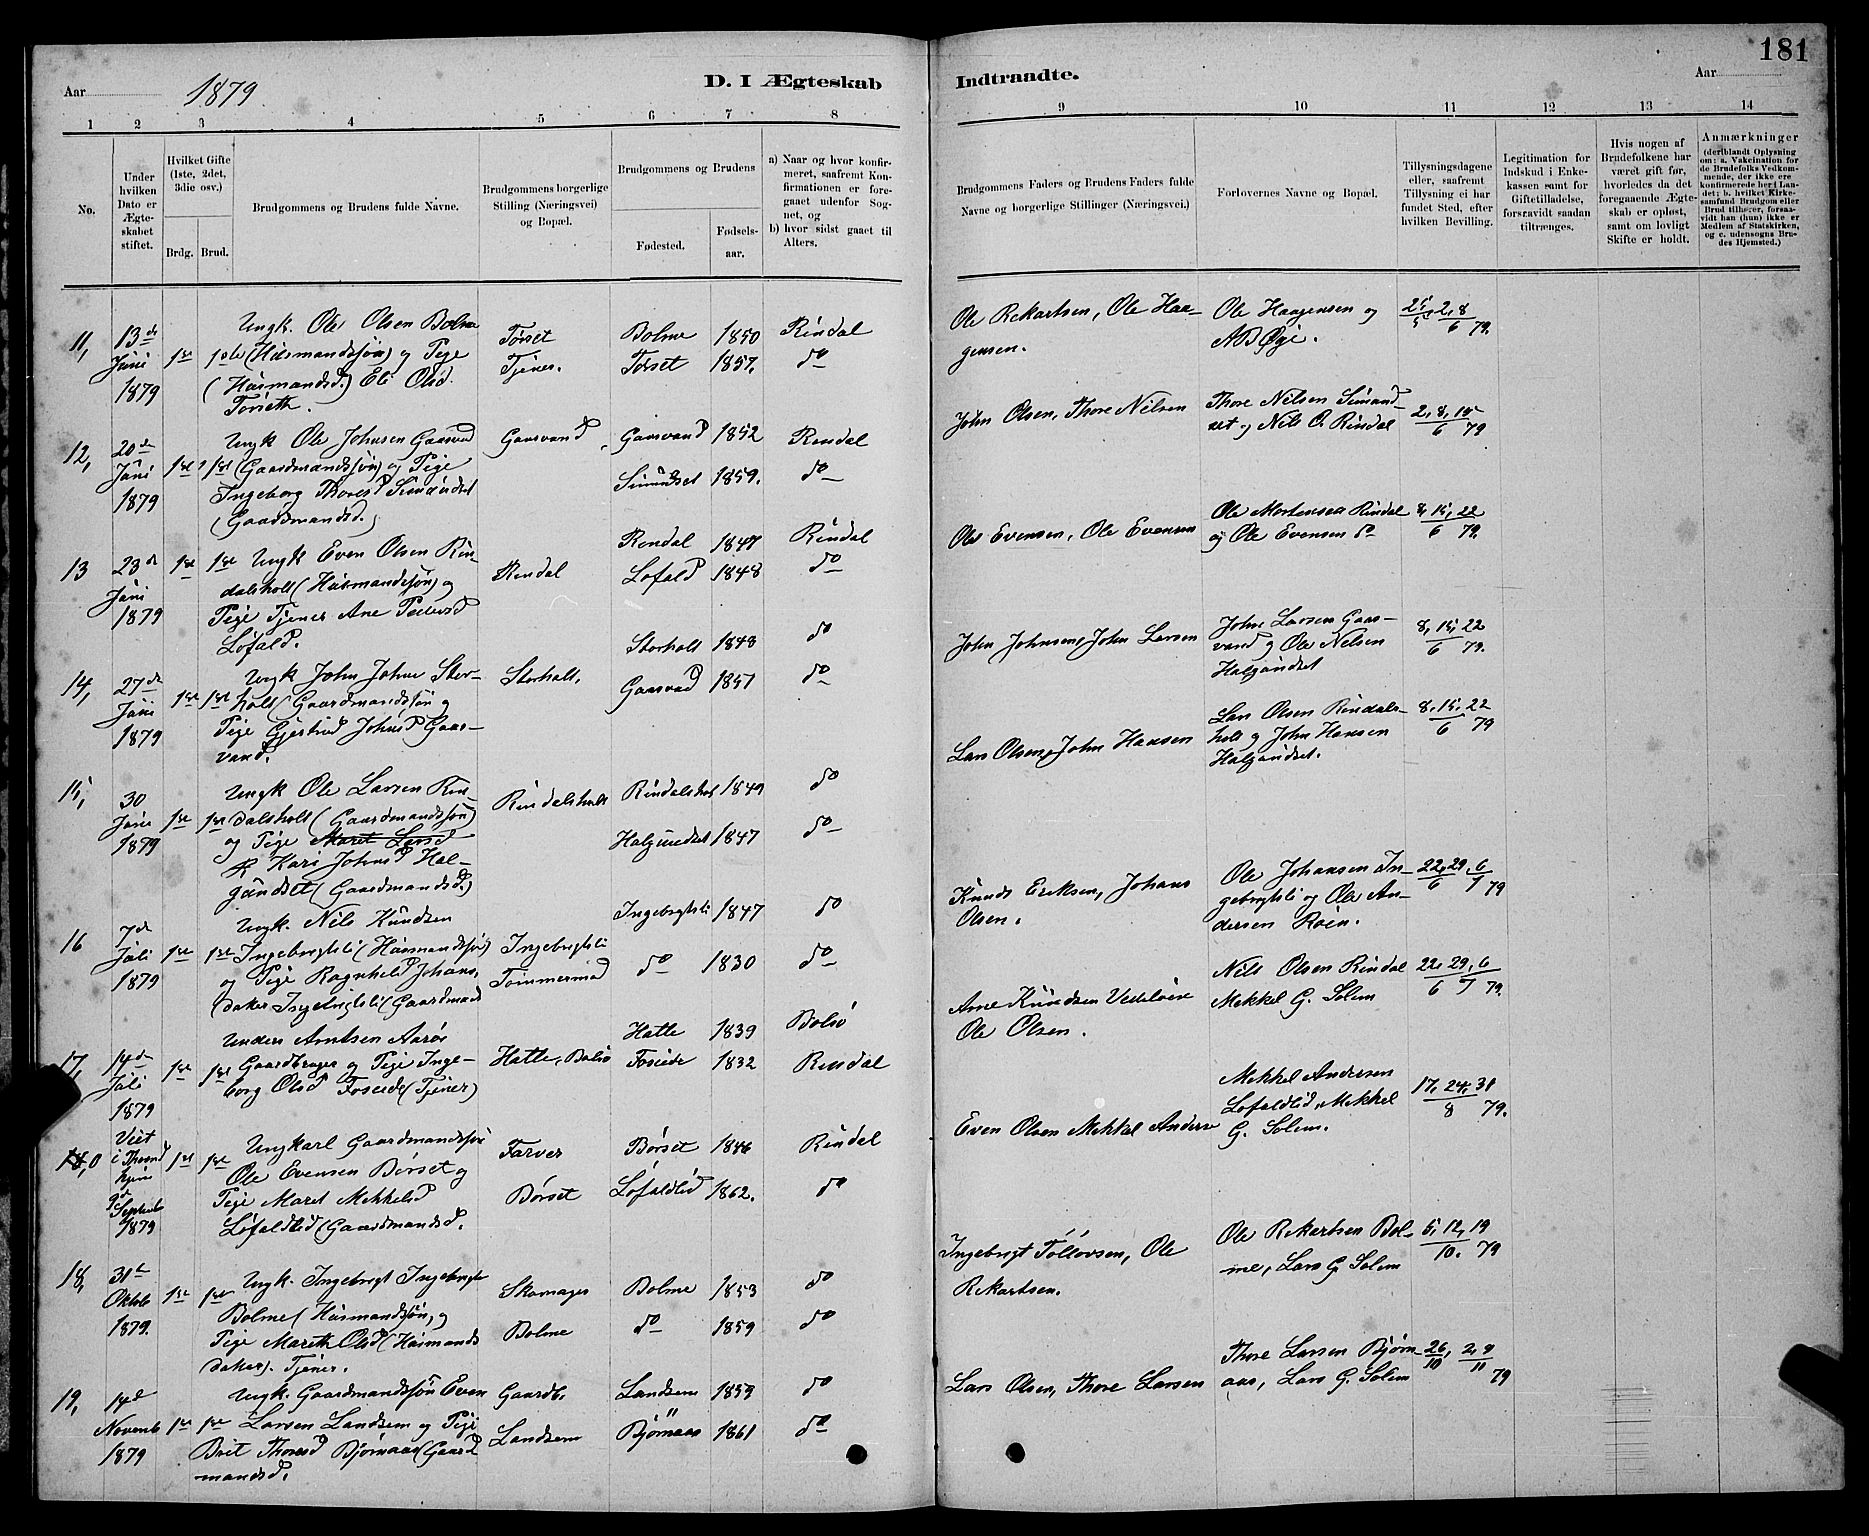 181
Aar 1879.
D. I Ægteskab
Indtraadte.
Aar
1 2 3 4 5 6 7 8
9 10 11 12 13 14
No.
Under hvilken Dato er Ægteskabet stiftet.
Hvilket Gifte (1ste, 2det, 3die osv.)
Brdg. Brud.
Brudgommens og Brudens fulde Navne.
Brudgommens borgerlige Stilling (Næringsvei) og Bopæl.
Brudgommens og Brudens
Fødested. Fødselsaar.
a) Naar og hvor konfirmeret, saafremt Konfirmationen er foregaaet udenfor Sognet, og
b) hvor sidst gaaet til Alters.
Brudgommens Faders og Brudens Faders fulde Navne og borgerlige Stillinger (Næringsvei.)
Forlovernes Navne og Bopæl.
Tillysningsdagene eller, saafremt Tillysning ei har fundet Sted, efter hvilken Bevilling.
Legitimation for Indskud i Enkekassen samt for Giftetilladelse, forsaavidt saadan tiltrænges.
Hvis nogen af Brudefolkene har været gift før, hvorledes da det foregaaende Ægteskab er opløst, samt om lovligt Skifte er holdt.
Anmærkninger
(deriblandt Oplysning om: a. Vakcination for de Brudefolks Vedkommende, der ikke ere konfirmerede her i Landet; b. hvilket Kirkesamfund Brudgom eller Brud tilhører, forsaavidt han (hun) ikke er Medlem af Statskirken, og c. udensogns Brudes Hjemsted.)
11, 13de Juni 1879 1ste 1ste
Ungk. Ole Olsen Bolme
(Husmandssøn) og Pige
(Husmandsd.) Eli Olsd.
Torseth.
Torset
Tjener.
Bolme 1850 Rindal
Torset 1857. do
Ole Rekartsen, Ole Haa-
gensen.
Ole Haagensen og
NB Øye.
25/5, 2, 8/6 79.
12, 20de Juni 1879 1ste 1ste
Ungk Ole Johnsen Gaasvand
(Gaardmandssøn) og Pige
Ingeborg Thoresd Simundset
(Gaardmandsd.)
Gaasvand,
Gaasvand 1852 Rindal
Simundset 1859. do
John Olsen, Thore Nilsen
Thore Nilsen Simund-
set og Nils O. Rindal
2, 8, 15/6 79
13 23de Juni 1879 1ste 1ste
Ungk Even Olsen Rin-
dalsholt (Husmandssøn) og
Pige Tjener Ane Pedersd
Løfald.
Rindal
Rindal 1847 Rindal
Løfald 1848 do
Ole Evensen, Ole Evensen
Ole Mortensen Rindal
og Ole Evensen do
8, 15, 22/6 79.
14, 27de Juni 1879 1ste 1ste
Ungk John Johns Stor-
holt (Gaardmandssøn og
Pige Gjertrud Johnsd Gaas-
vand.
Storholt.
Storholt 1848 do
Gaasvad 1851 do
John Johnsen, John Larsen
John Larsen Gaas-
vand og Ole Nilsen
Halgundset
8, 15, 22/6 79.
15, 30 Juni 1879 1ste 1ste
Ungk Ole Larsen Rin-
dalsholt (Gaardmandssøn)
og Pige Maret Larsd
Kari Johnsd Hal-
gundset (Gaardmandsd.)
Rindalsholt
Rindalsholt 1849 do
Halgundset 1847 do
Lars Olsen, John Hansen
Lars Olsen Rindals-
holt og John Hansen
Halgundset.
8, 15, 22/6 79
16 7de Juli 1879 1ste 1ste
Ungk. Nils Knudsen
Ingebrigtsli (Husmandssøn)
og Pige Ragnhild Johans-
daker Ingebrigtsli (Gaardmand
Ingebrigtsli
Tømmermand
Ingebrigtsli 1847 do
do 1830 do
Knud Eriksen, Johans
Olsen.
Ole Johansen In-
gebrigtsli og Ole An-
dersen Røen.
22, 29/6, 6/7 79
17, 14de Juli 1879 1ste 1ste
Anders Arntsen Aarøe
Gaardbruger og Pige Inge-
borg Olsd Foseide (Tjener)
Hatte, Bolsø
Hatte 1839 Bolsø
Foseide 1832 Rindal
Arne Knudsen
Ole Olsen.
Nils Olsen Rindal
Mekkel G. Solem
22, 29/6, 6/7 79.
18,0 Viet i Thrond hjem 9de Septemb 1879 1ste 1ste
Ungkarl Gaardmandssøn
Ole Evensen Børset og
Pige Maret Mekkelsd
Løfaldlid (Gaardmandsd.
Farver
Børset
Børset 1846 Rindal
Løfaldlid 1862. do
Even Olsen Mekkel Anderse
Mekkel Andersen
Løfaldlid, Mekkel
G. Solem.
17, 24, 31/8 79.
18, 31te Oktob 1879. 1ste 1ste
Ungk. Ingebrigt Ingebrigts
Bolme (Husmandssøn, og
Pige Mareth Olsd (Husmands
daker). Tjener.
Skomager
Bolme
Bolme 1853 do
do 1859 do
Ingebrigt Tollovsen, Ole
Rekartsen.
Ole Rekartsen Bol-
me, Lars G. Solem
5, 12, 19/10. 79
19, 14de Novemb 1879 1ste 1ste
Ungk. Gaardmandssøn Even
Larsen Landsem og Pige
Brit Thoresd Bjørnaas (Gaard
mandsd.
Gaardb.
Landsem
Landsem 1859 do
Bjørnaas 1861 do
Lars Olsen, Thore Larsen
Thore Larsen Bjørn-
aas, Lars G. Solem
26/10, 2, 9/11 79